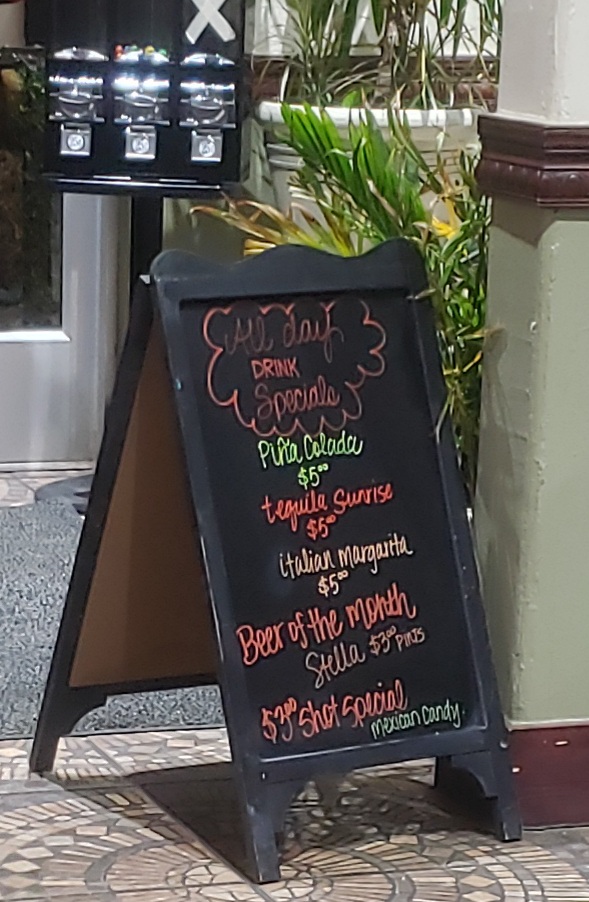 All day
DRINK
Specials
Piña Colada
$5⁰⁰
tequila Sunrise
$5⁰⁰
italian margarita
$5⁰⁰
Beer of the month
Stella $3⁰⁰ PINTS
$3⁰⁰ Shot Special
mexican candy